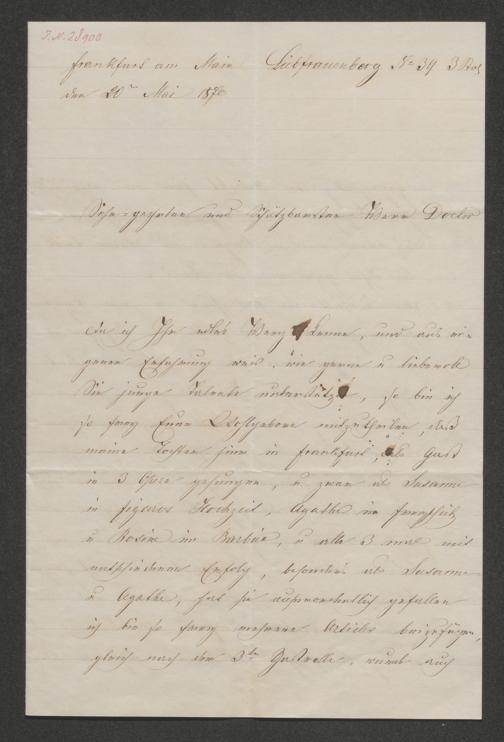 J.N. 28900
Frankfurt am Main Liebfrauenberg No 39 3 Stock
den 20ten Mai 1870
Sehr geehrter und Schätzbarster Herr Doctor
Da ich Ihr edles Herz kenne, und aus ei-
gener Erfahrung weis, wie gerne u liebevoll
Sie junge Talente unterstützt, so bin ich
so frey Euer Wohlgeboren mitzutheilen, das
meine Tochter hier in Frankfurt, als Gast
in 3 Opern gesungen, u zwar als Susanne
in Figaros Hochzeit, Agathe im Freyschütz
u Rosine im Barbier, u alle 3 mal mit
entschiedenen Erfolg, besonders als Susanne
u Agathe, hat sie außerordentlich gefallen
ich bin so frey mehrere Articles beizufügen,
gleich nach der 3ten Gastrolle, wurde auch